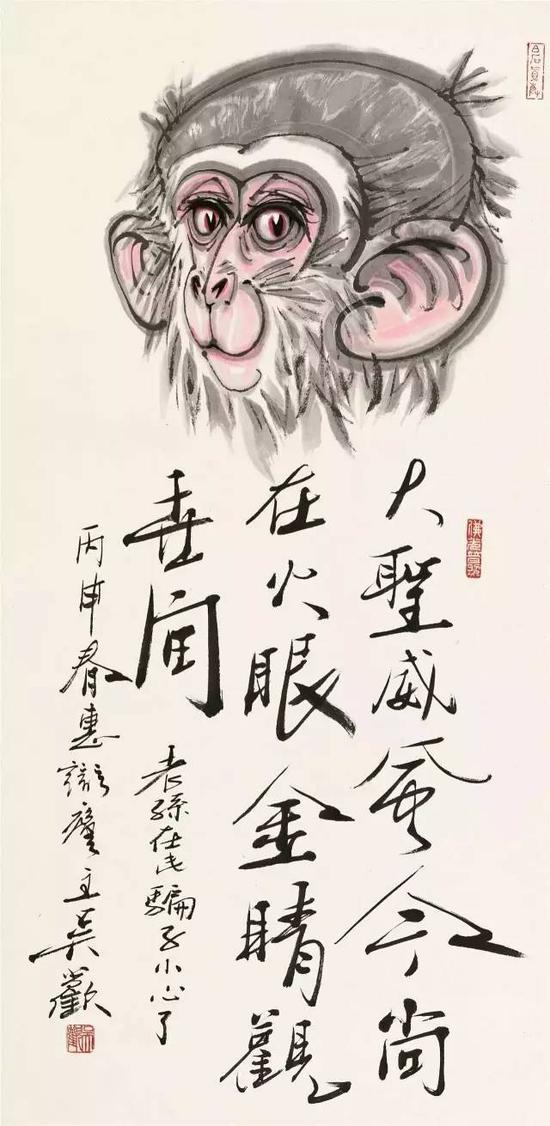 大聖威風今尚
在火眼金睛觀
世间
老孫在此騙子小心了
丙申春惠廬主吳歡